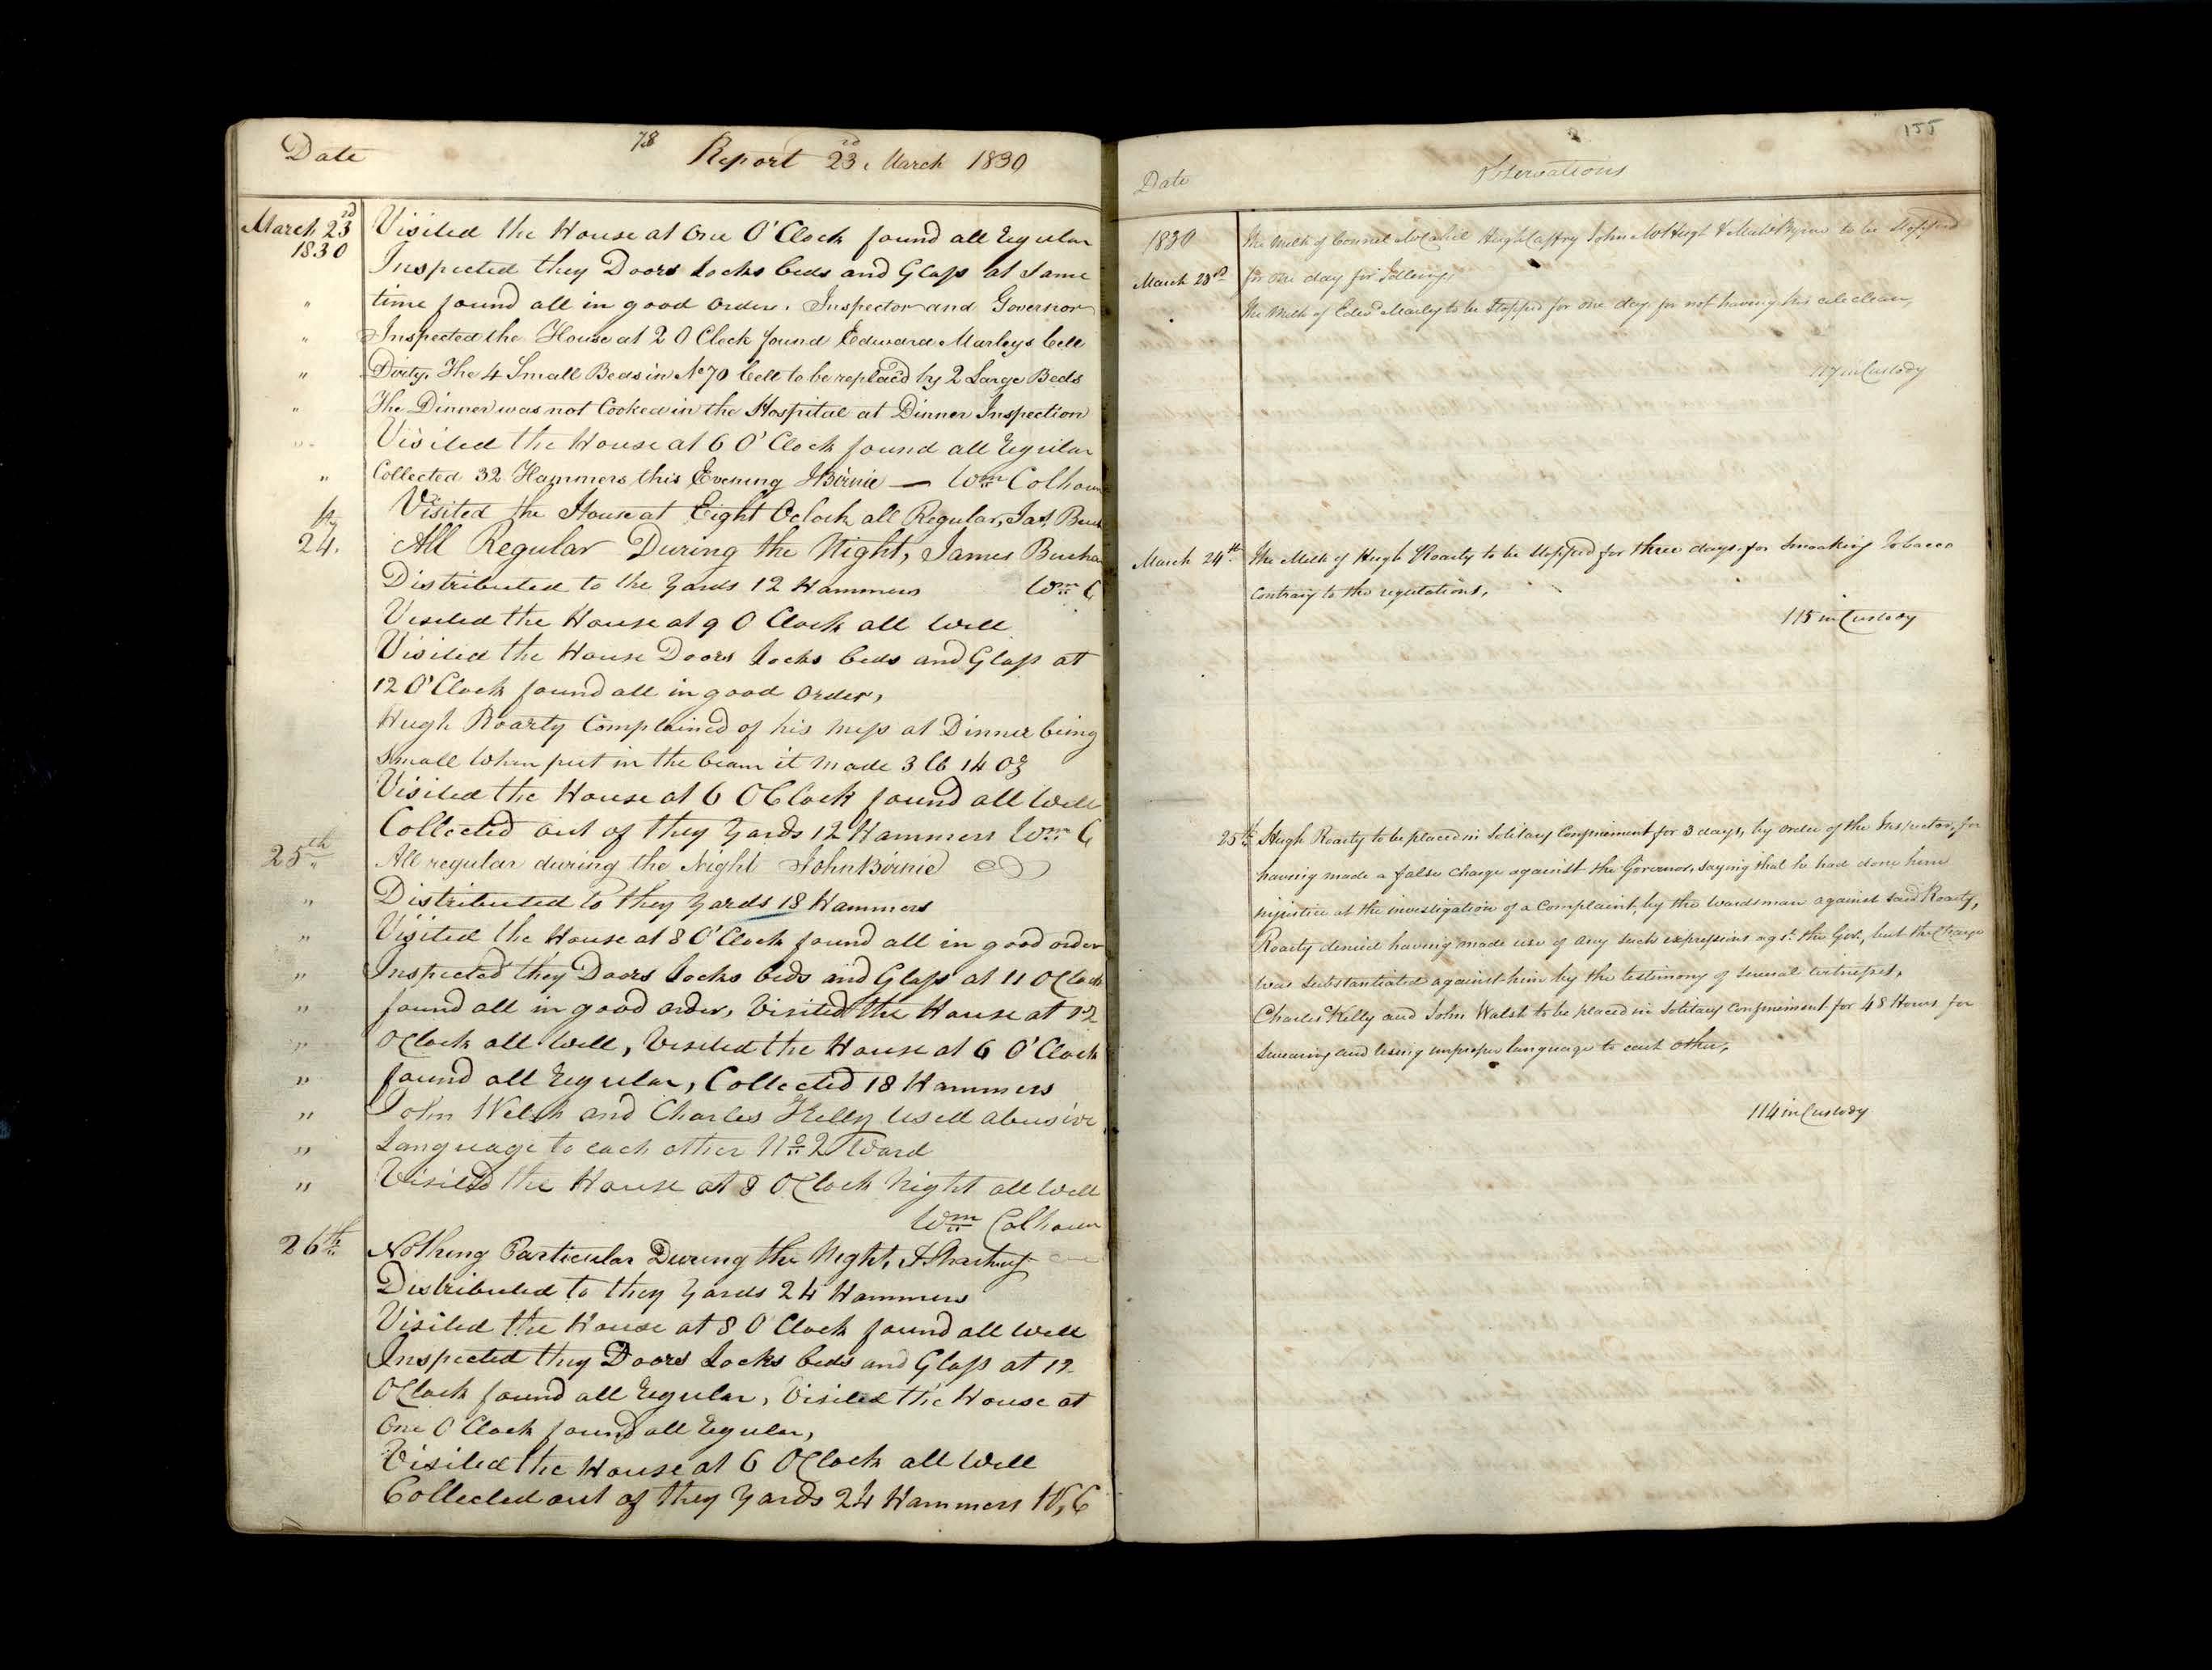 Date
78
Report 23rd March 1830
March 23rd
1830
Visited the House at One O'Clock found all Regular
Inspected they Doors Locks beds and Glass at Same
time found all in good Order. Inspector and Governor
Inspected the House at 2 O Clock found Edward Marleys Cell
Dirty. The 4 Small Beds in No 70 Cell to be replac'd by 2 Large Beds
The Dinner was not Cooked in the Hospital at Dinner Inspection
Visited the House at 6 O'Clock found all Regular
Collected 32 Hammers this Evening JBirnie — Wm Colhoun
Visited the House at Eight Oclock all Regular, Jas.
24. All Regular During the Night, James
Distributed to the Yards 12 Hammers Wm C
Visited the House at 9 O Clock all Well
Visited the House Doors Locks beds and Glass at
12 O'Clock found all in good Order,
Hugh Roarty Complained of his mess at Dinner being
Small When put in the beam it made 3 lb 14 oz
Visited the House at 6 OClock found all Well
Collected out of they Yards 12 Hammers Wm C
25th All regular during the Night John Birnie
Distributed to they Yards 18 Hammers
" Visited the House at 8 O'Clock found all in good order
" Inspected they Doors Locks beds and Glass at 11 OClock
" found all in good order, Visited the House at 12
" OClock all Well, Visited the House at 6 O'Clock
" found all Regular, Collected 18 Hammers
" John Welsh and Charles Kelly Used abusive
" Language to each other No 2 Ward
" Visited the House at 8 OClock Night all Well
Wm Colhoun
26th Nothing Particular During the Night,
Distributed to they Yards 24 Hammers
Visited the House at 8 O'Clock found all Well
Inspected they Doors Locks beds and Glass at 12
OClock found all Regular, Visited the House at
One O'Clock found all Regular,
Visited the House at 6 OClock all Well
Collected out of they Yards 24 Hammers W, C
155
Date
Observations
1830
March 23rd
The Milk of Connel Hugh Caffry John McHugh & Byrne to be Stopped
for one day for Idleing,
The Milk of Edwd Marley to be Stopped for one day for not having his cell clean,
117 in Custody
March 24th The Milk of Hugh Roarty to be Stopped for three days for Smoaking Tobacco
Contrary to the regulations,
115 in Custody
25th Hugh Roarty to be placed in Solitary Confinement for 3 days, by order of the Inspector, for
having made a false charge against the Governor, saying that he had done him
injustice at the investigation of a Complaint, by the wardsman against said Roarty,
Roarty denied having made use of any such expressions agst. the Govr., but the Charge
was Substantiated against him by the testimony of Several witnesses,
Charles Kelly and John Walsh to be placed in Solitary Confinement for 48 Hours for
Swearing and using improper language to each other,
114 in Custody